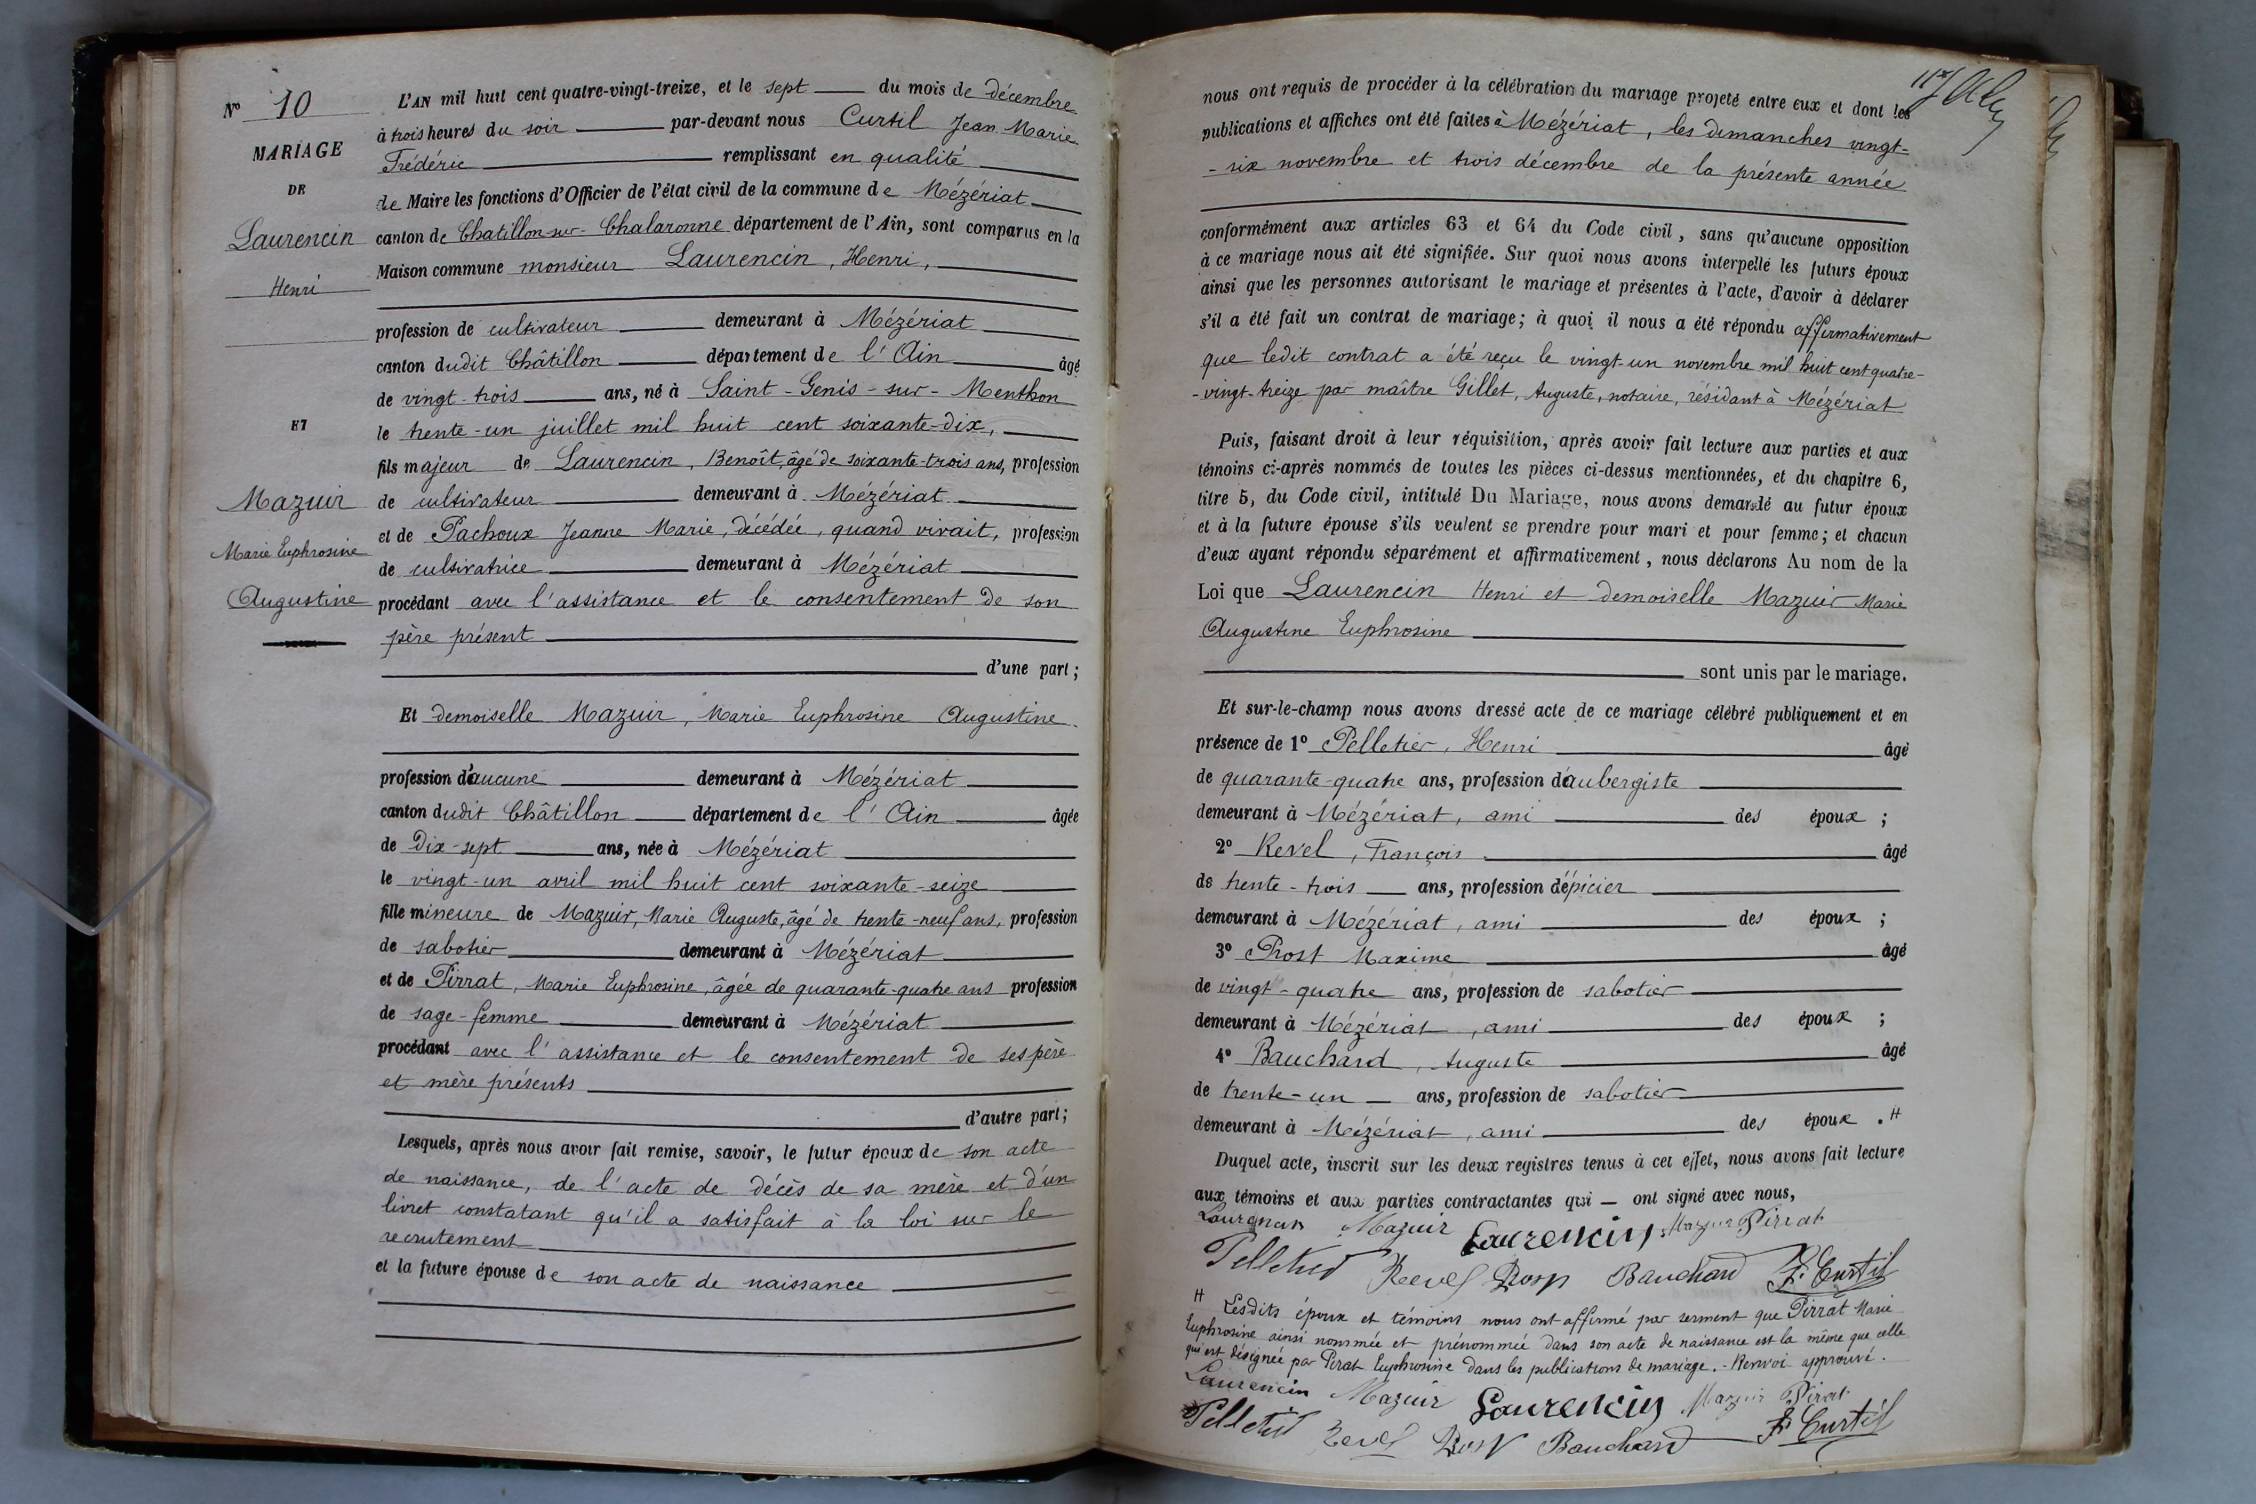 N° 10
MARIAGE
DE
Laurencin
Henri
ET
Mazuir
Marie Euphrosine
Augustine
L'AN mil huit cent quatre-vingt-treize, et le sept du mois de décembre
à trois heures du soir par-devant nous Curtil Jean Marie
Frédéric remplissant en qualité
de Maire les fonctions d'Officier de l'état civil de la commune de Mézériat
canton de Chatillon-sur-Chalaronne département de l'Ain, sont comparus en la
Maison commune monsieur Laurencin, Henri,
profession de cultivateur demeurant à Mézériat
canton dudit Châtillon département de l'Ain âgé
de vingt-trois ans, né à Saint-Genis-sur-Menthon
le trente-un juillet mil huit cent soixante-dix,
fils majeur de Laurencin, Benoît, âgé de soixante-trois ans, profession
de cultivateur demeurant à Mézériat
et de Pachoux Jeanne Marie, décédée, quand vivait, profession
de cultivatrice demeurant à Mézériat
procédant avec l'assistance et le consentement de son
père présent
d'une part;
Et demoiselle Mazuir, Marie Euphrosine Augustine
profession d'aucune demeurant à Mézériat
canton dudit Châtillon département de l'Ain âgée
de dix-sept ans, née à Mézériat
le vingt-un avril mil huit cent soixante-seize
fille mineure de Mazuir, Marie Auguste, âgé de trente-neuf ans, profession
de sabotier demeurant à Mézériat
et de Pirrat, Marie Euphrosine, âgée de quarante-quatre ans profession
de sage-femme demeurant à Mézériat
procédant avec l'assistance et le consentement de ses père
et mère présents
d'autre part;
Lesquels, après nous avoir fait remise, savoir, le futur époux de son acte
de naissance, de l'acte de décès de sa mère et d'un
livret constatant qu'il a satisfait à la loi sur le
recrutement
et la future épouse de son acte de naissance
nous ont requis de procéder à la célébration du mariage projeté entre eux et dont les
publications et affiches ont été faites à Mézériat, les dimanches vingt-
-six novembre et trois décembre de la présente année
conformément aux articles 63 et 64 du Code civil, sans qu'aucune opposition
à ce mariage nous ait été signifiée. Sur quoi nous avons interpellé les futurs époux
ainsi que les personnes autorisant le mariage et présentes à l'acte, d'avoir à déclarer
s'il a été fait un contrat de mariage; à quoi il nous a été répondu affirmativement
que ledit contrat a été reçu le vingt-un novembre mil huit cent quatre-
-vingt-treize par maître Gillet, Auguste, notaire, résidant à Mézériat
Puis, faisant droit à leur réquisition, après avoir fait lecture aux parties et aux
témoins ci-après nommés de toutes les pièces ci-dessus mentionnées, et du chapitre 6,
titre 5, du Code civil, intitulé Du Mariage, nous avons demandé au futur époux
et à la future épouse s'ils veulent se prendre pour mari et pour femme; et chacun
d'eux ayant répondu séparément et affirmativement, nous déclarons Au nom de la
Loi que Laurencin Henri et demoiselle Mazuir Marie
Augustine Euphrosine
sont unis par le mariage.
Et sur-le-champ nous avons dressé acte de ce mariage célébré publiquement et en
présence de 1° Pelletier, Henri âgé
de quarante-quatre ans, profession d'aubergiste
demeurant à Mézériat, ami des époux ;
2° Revel, François âgé
de trente-trois ans, profession d'épicier
demeurant à Mézériat, ami des époux ;
3° Prost Maxime âgé
de vingt-quatre ans, profession de sabotier
demeurant à Mézériat, ami des époux ;
4° Bauchard, Auguste âgé
de trente-un ans, profession de sabotier
demeurant à Mézériat, ami des époux . H
Duquel acte, inscrit sur les deux registres tenus à cet effet, nous avons fait lecture
aux témoins et aux parties contractantes qui — ont signé avec nous,
Laurencin Mazuir Laurencin Mazuir Pirrat
Pelletier Revel Prost Bauchard F. Curtil
H Lesdits époux et témoins nous ont affirmé par serment que Pirrat Marie
Euphrosine ainsi nommée et prénommée dans son acte de naissance est la même que celle
qui est désignée par Pirat Euphrosine dans les publications de mariage. - Renvoi approuvé.
Laurencin Mazuir Laurencin Mazuir Pirrat
Pelletier Revel Prost Bauchard F. Curtil